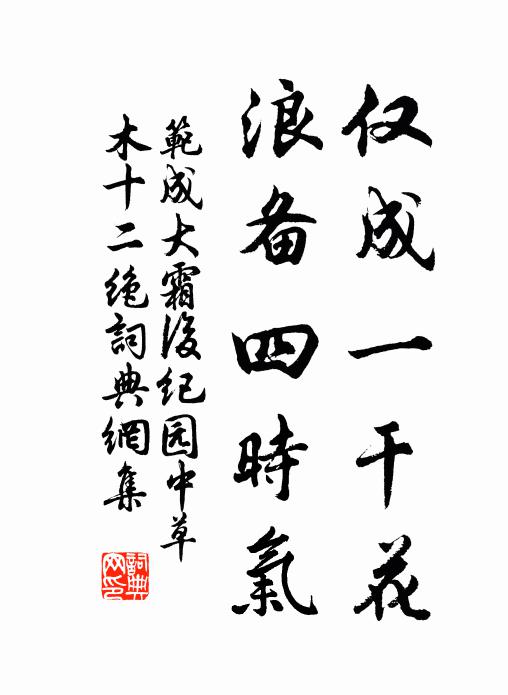 仅成一干花
浪备四時氣
範成大霜後纪园中草
木十二绝詞典網集
詞典網印